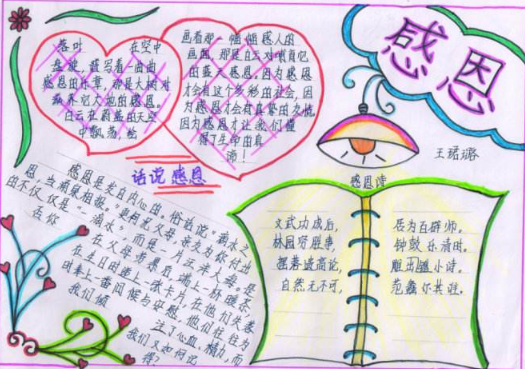 感恩
王珺璐
落叶 在空中
盘旋,谱写着一曲曲
感恩的乐章,那是大树对
滋养它大地的感恩。
白云在蔚蓝的天空
中飘荡,绘
画着那一幅幅感人的
画面,那是白云对哺育它
的蓝天感恩。因为感恩
才会有这个多彩的社会,因
为感恩才会有真挚的友情,
因为感恩才让我们懂
得了生命的真
谛!
话说感恩
感恩是发自内心的。俗话说"滴水之
恩,当涌泉相报。"更何况父母,亲友为你付出
的不仅仅是"一滴水",而是一片汪洋大海。是
否你
在父母劳累后递上一杯暖茶,
在生日时递上一张卡片,在他们失落
时奉上一番问候与安慰,他们往往为
我们倾
注了心血、精力,而
我们又如何记
得?
感恩诗
文武功成后,
居为百辟师。
林园资胜事,
钟鼓乐清时。
摆落遗高论,
雕出小诗。
自然无不可,
范蠡尔其谁。